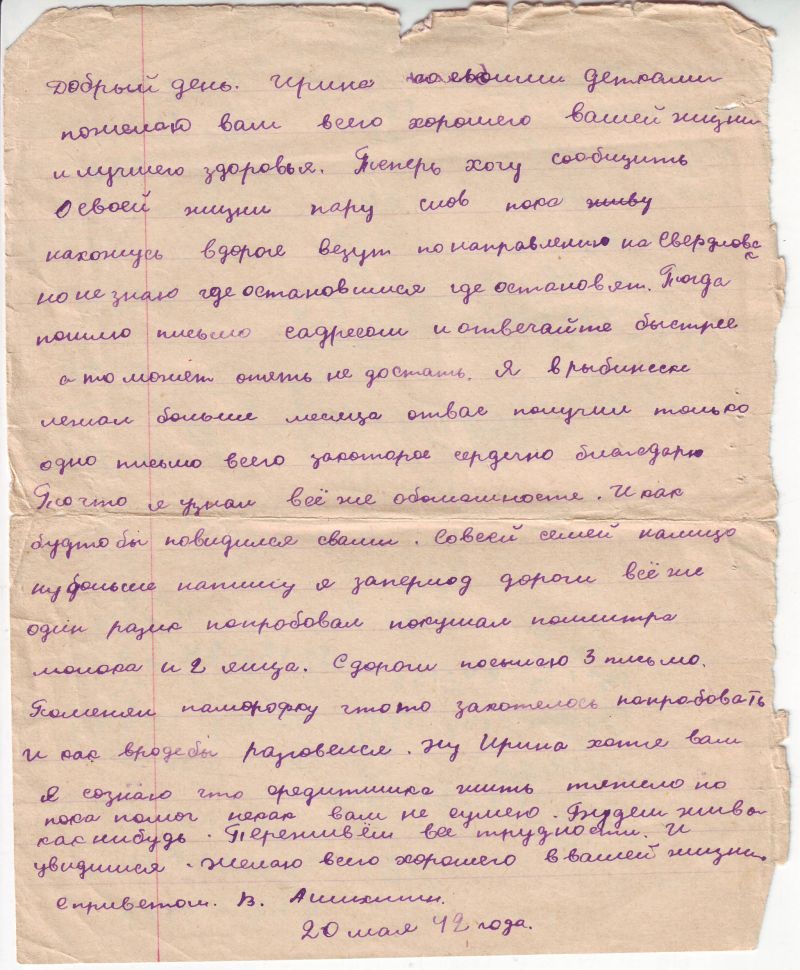 Добрый день. Ирина со своими детками
пожелаю вам всего хорошего вашей жизни
и лучшего здоровья. Теперь хочу сообщить
О своей жизни пару слов пока живу
нахожусь вдороге везут по направлению на Свердловск
но не знаю где остановимся где остановят. Тогда
пошлю письмо садресом и отвечайте быстрее
а то может опять не достать. Я врыбинске
лежал больше месяца отвас получил только
одно письмо всего закоторое сердечно благодарю
То что я узнал всё же обомашносте. И как
будто бы повидился свами. Совсей семей налицо
ну больше напишу я запериод дороги всё же
один разик попробовал покушал поллитра
молока и 2 яица. Сдороги посылаю 3 письмо.
Поменял что то захотелось попробовать
и как вродебы разговелся. Ну Ирина хотя вам
я сознаю что жить тяжело но
пока помог некак вам не сумею. Будем живы
как нибудь. Переживём все трудности. И
увидимся. Желаю всего хорошего ввашей жизни.
Сприветом. В.
20 мая 42 года.